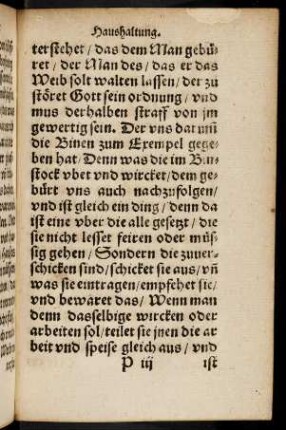 Haushaltung.
terstehet / das dem Man gebü-
ret / der Man des / das er das
Weib solt walten lassen / der zu
störet Gott sein ordnung / vnd
mus derhalben straff von jm
gewertig sein. Der vns dat vm̄
die Binen zum Exempel gege-
ben hat / Denn was die im Bin-
stock vbet vnd wircket / dem ge-
bürt vns auch nachzufolgen /
vnd ist gleich ein ding / denn da
ist eine vber die alle gesetzt / die
sie nicht lesset feiren oder müs-
sig gehen / Sondern die zuuer-
schicken sind / schicket sie aus / vn̄
was sie eintragen / empfehet sie /
vnd bewaret das / Wenn man
denn dasselbige wircken oder
arbeiten sol / teilet sie jnen die ar
beit vnd speise gleich aus / vnd
P iij ist